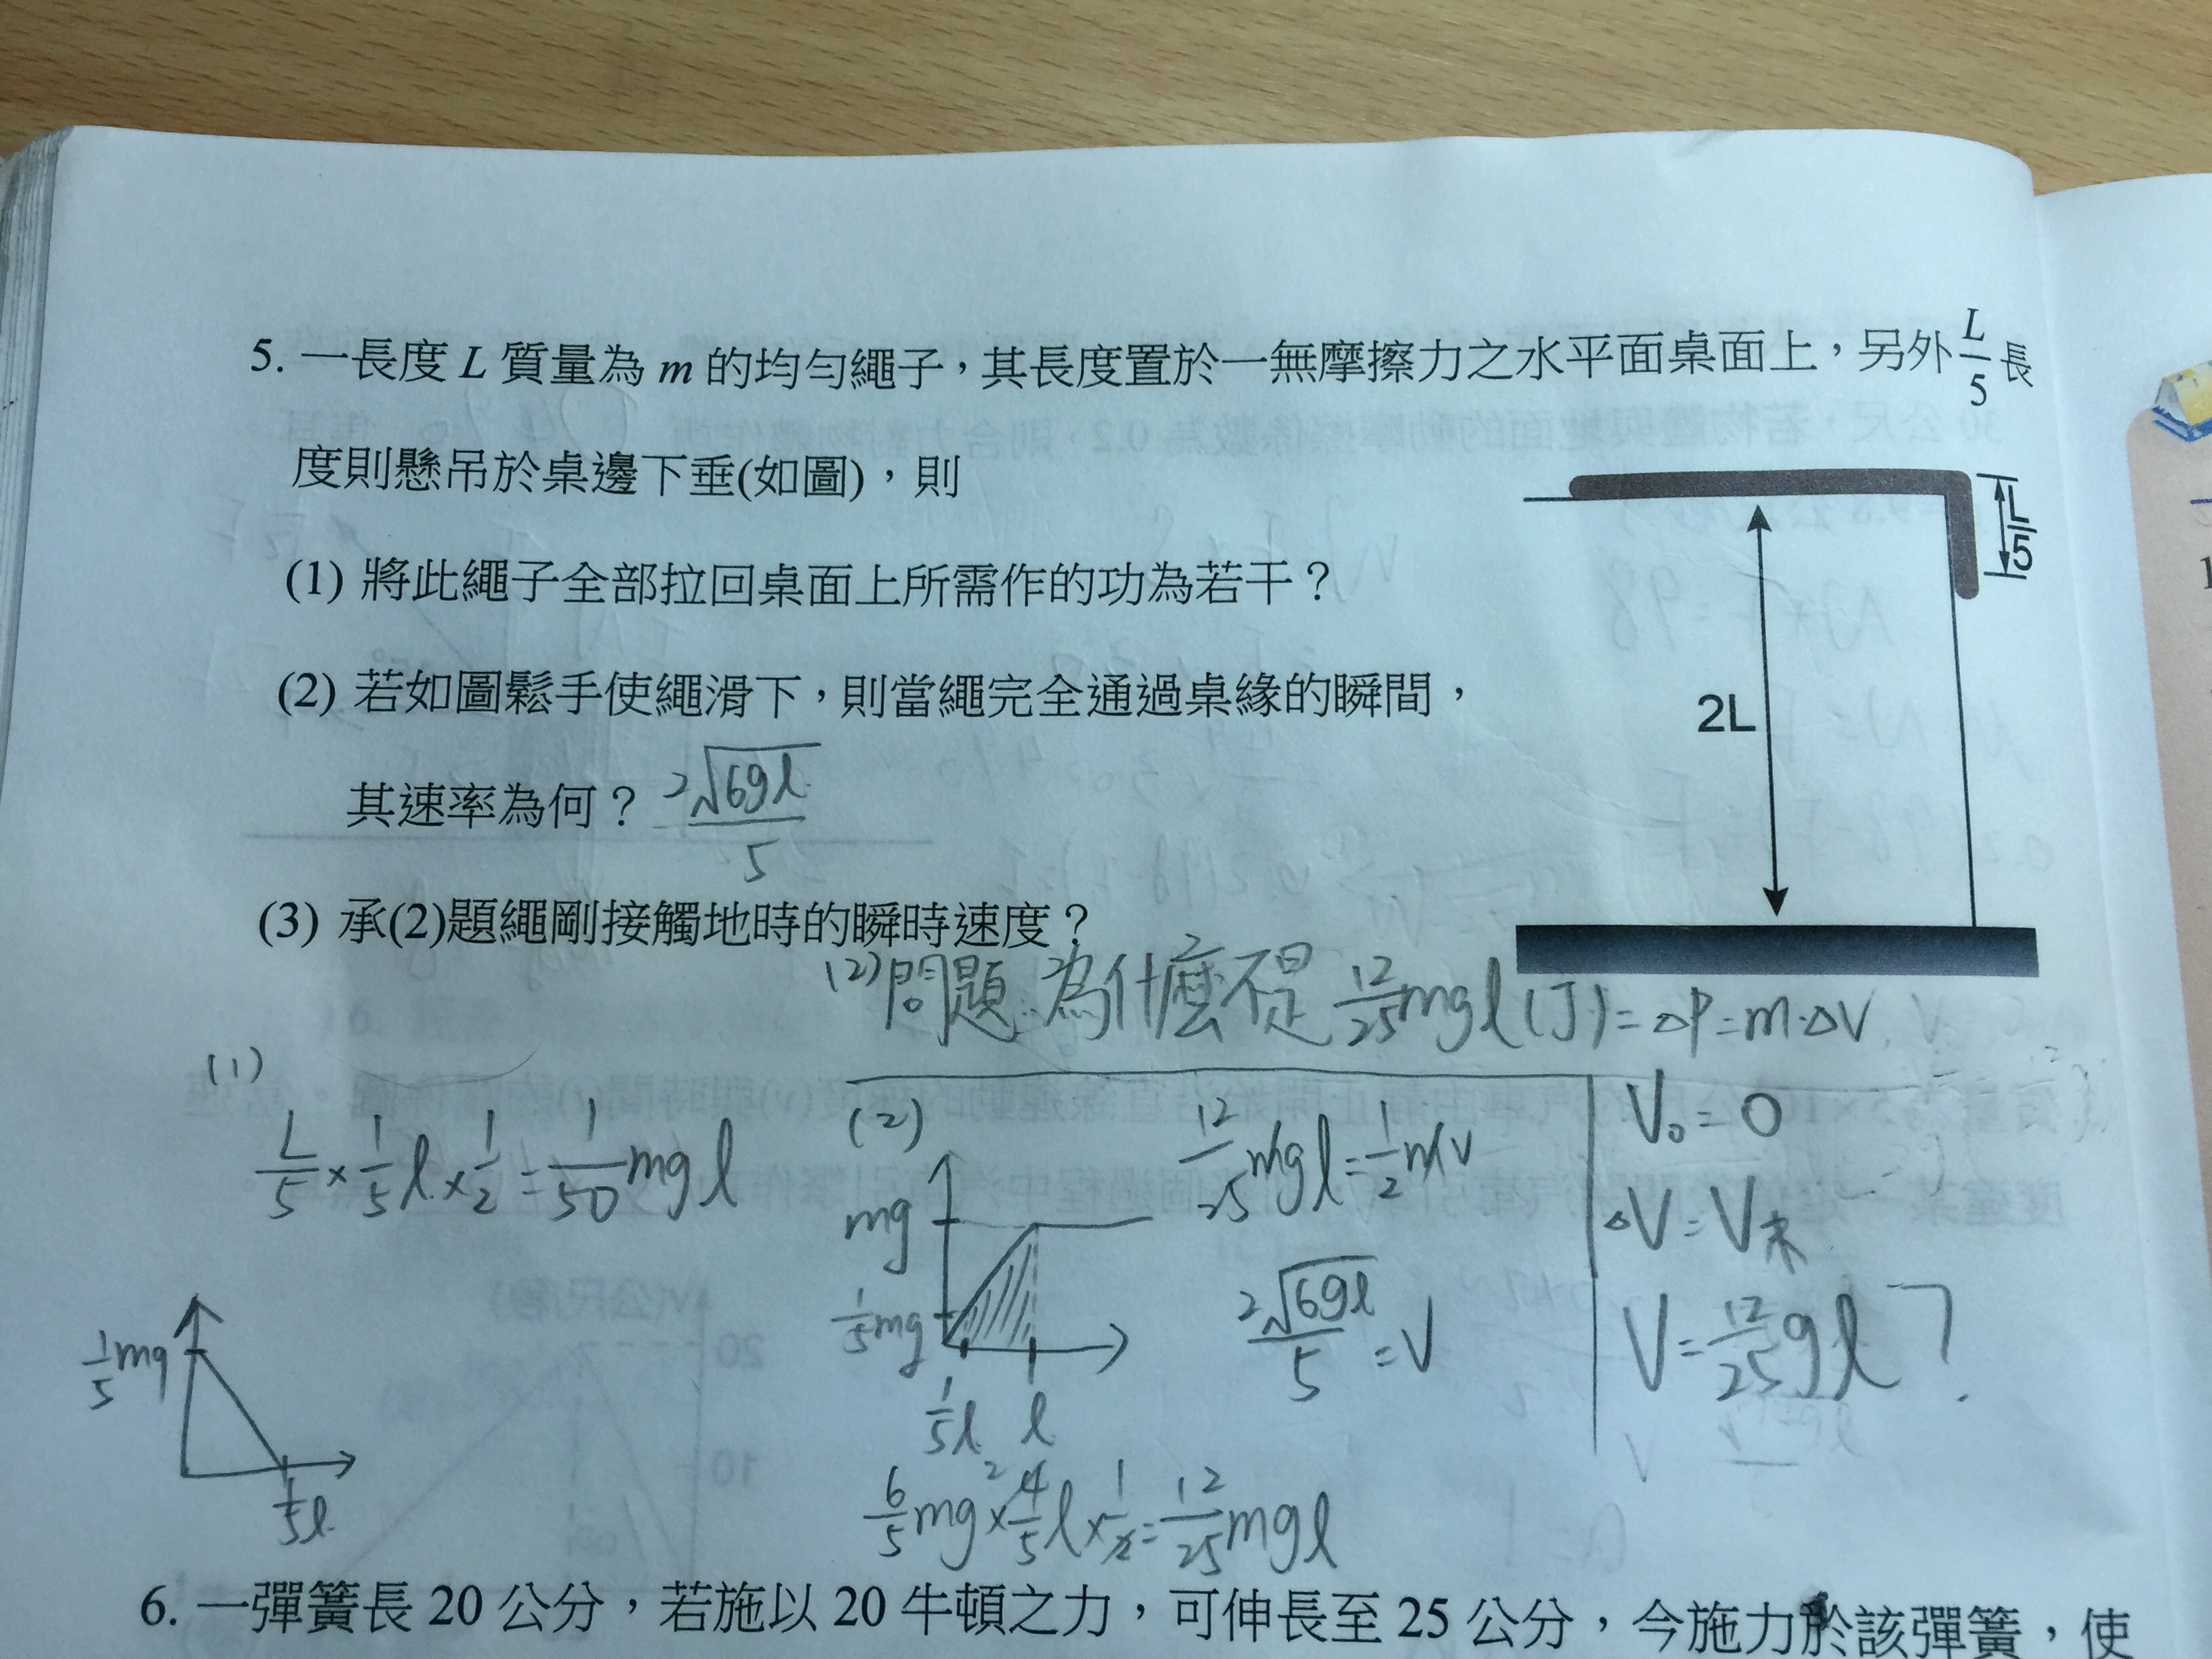 5. 一長度 L 質量為 m 的均勻繩子，其長度置於一無摩擦力之水平面桌面上，另外 L/5 長
度則懸吊於桌邊下垂(如圖)，則
L/5
(1) 將此繩子全部拉回桌面上所需作的功為若干？
(2) 若如圖鬆手使繩滑下，則當繩完全通過桌緣的瞬間，
2L
其速率為何？ 2√6gl/5
(3) 承(2)題繩剛接觸地時的瞬時速度？
(2)問題：為什麼不是 12/25 mgl (J) = △P = m·△V
(1)
L/5 × 1/5 l × 1/2 = 1/50 mgl
1/5 mg
1/5 l
(2)
mg
1/5 mg
1/5 l
l
12/25 mgl = 1/2 mv
2√6gl/5 = V
6/5 mg × 4/5 l × 1/2 = 12/25 mgl
V₀ = 0
△V = V末
V = 12/25 gl ?
6. 一彈簧長 20 公分，若施以 20 牛頓之力，可伸長至 25 公分，今施力於該彈簧，使
20
10
1